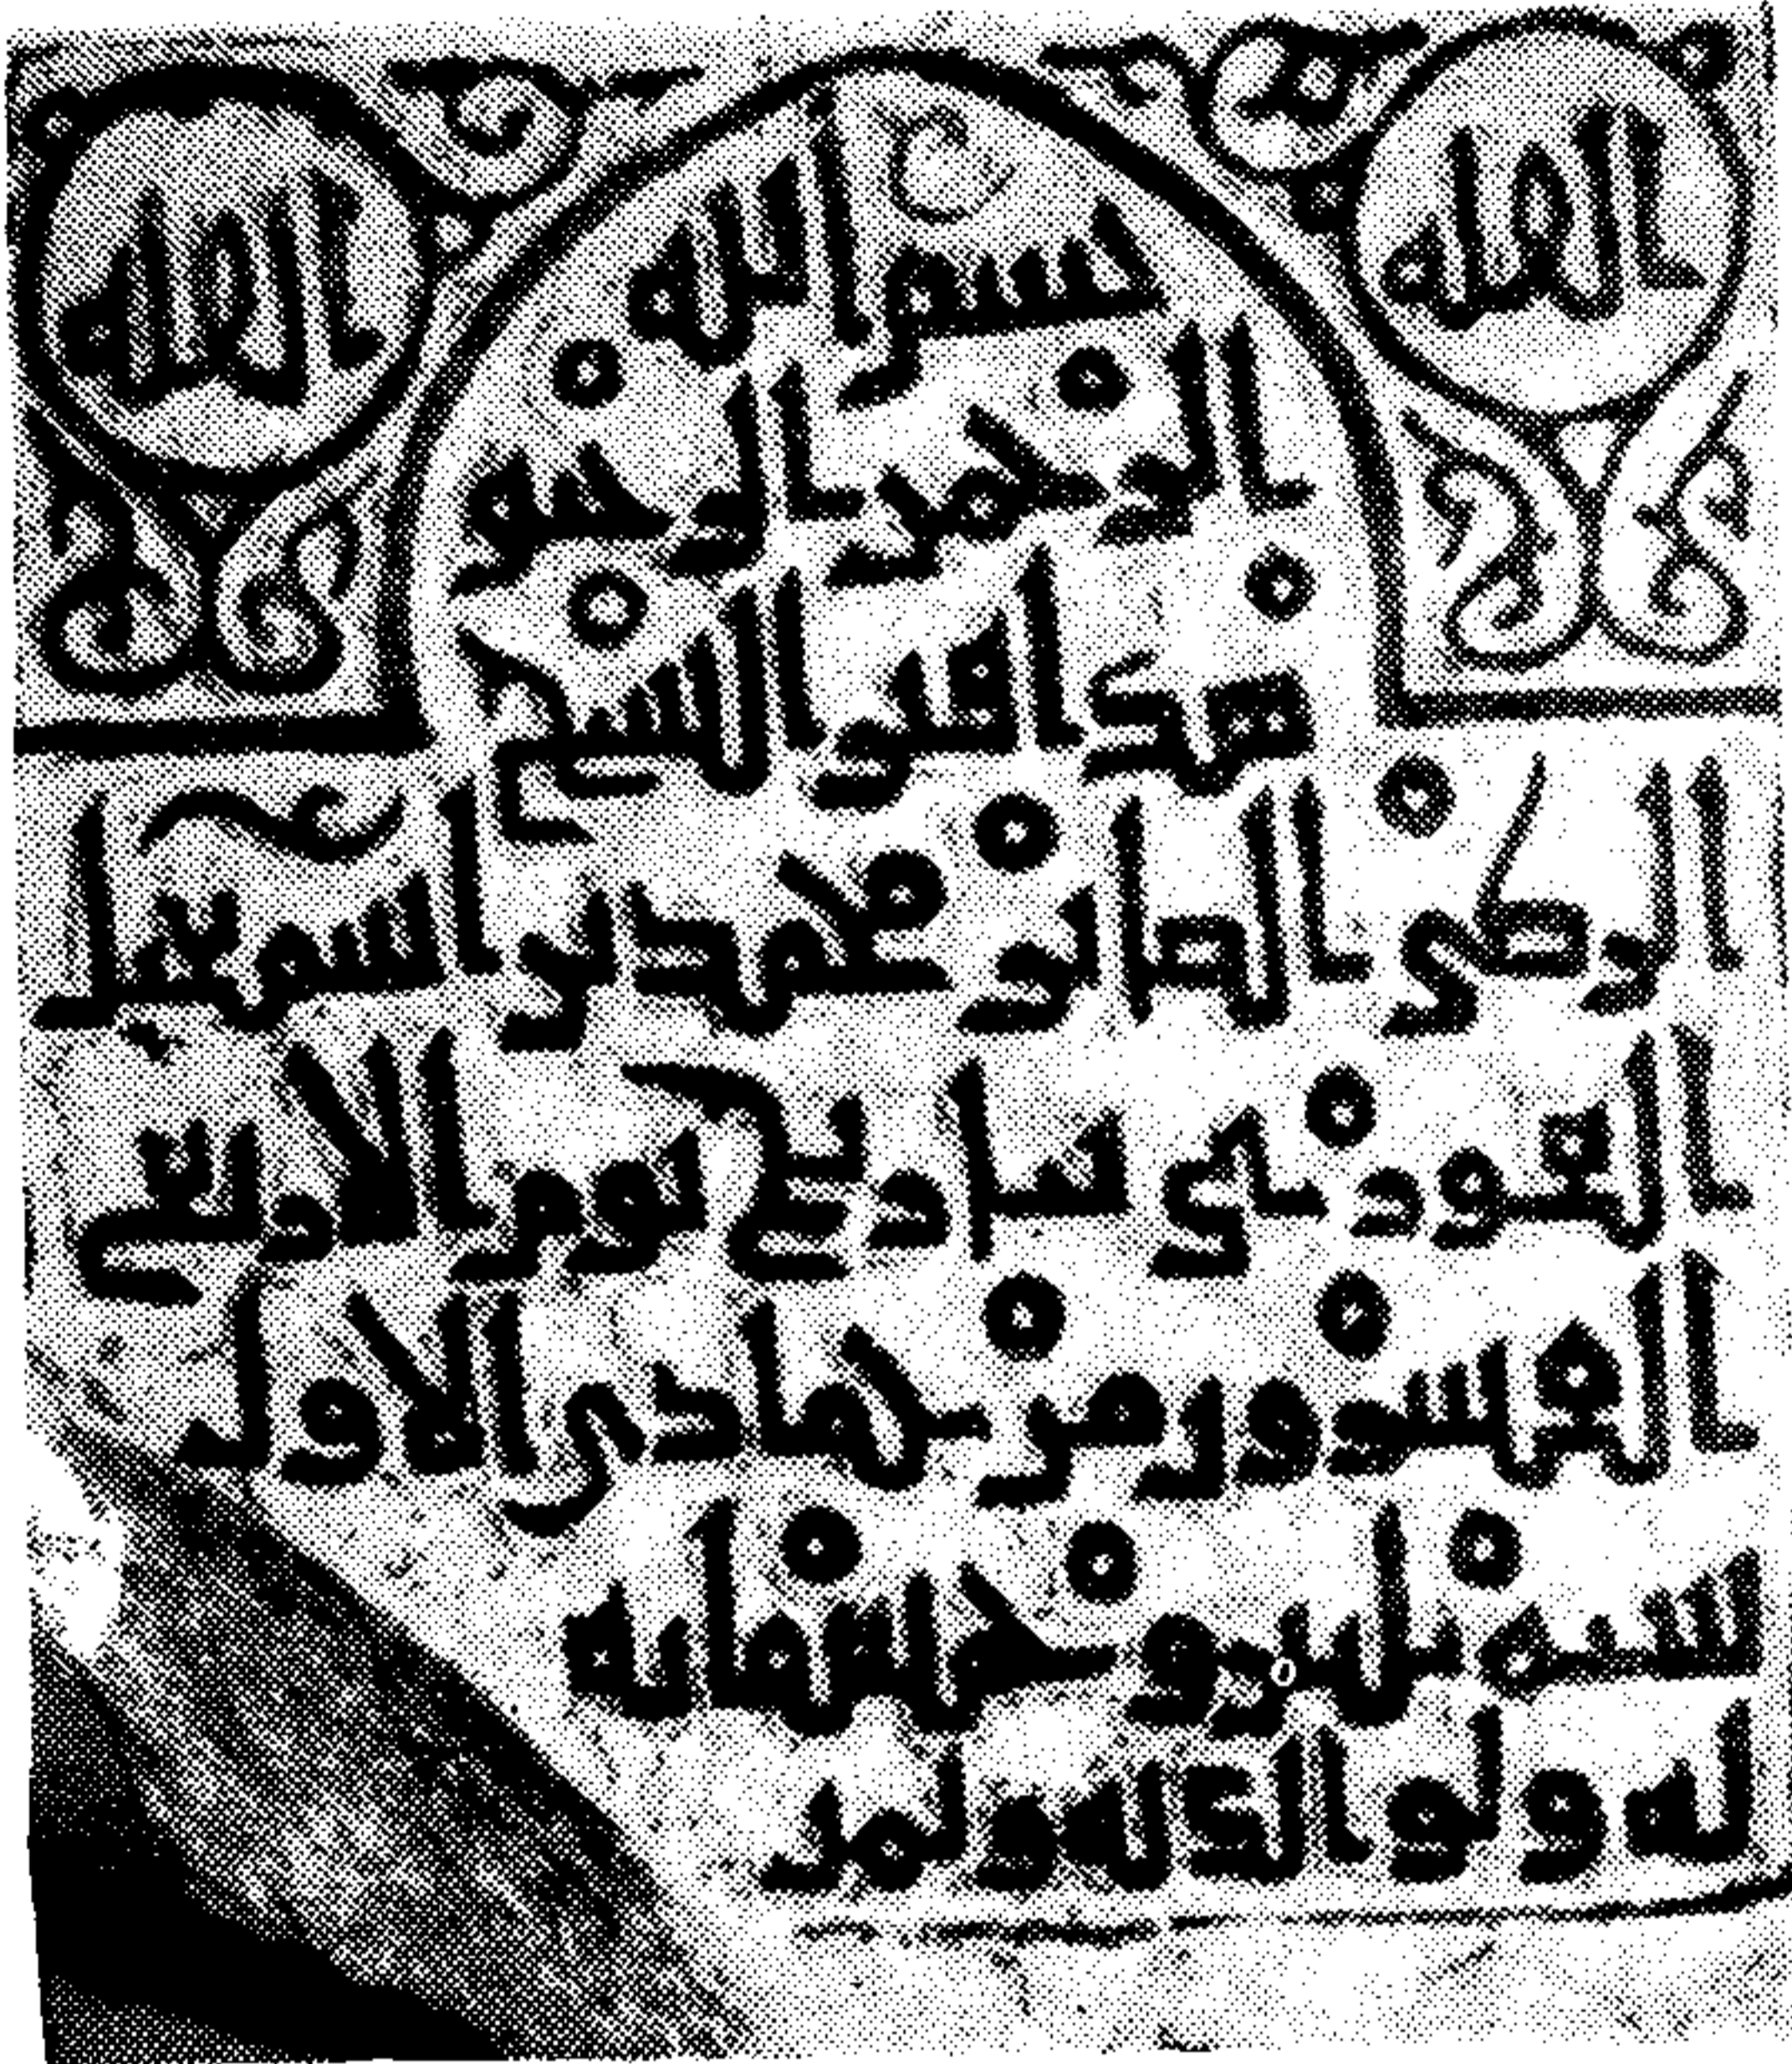 الله الله
بسم الله
الرحمن الرحيم
هذا قبر الشيخ
الرضي الصابر محمد بن اسمعيل
تاريخ يوم الاربع
العشرون من جمادى الاول
سنة ثلثين وخمسمائة
له ولوالديه ولمن